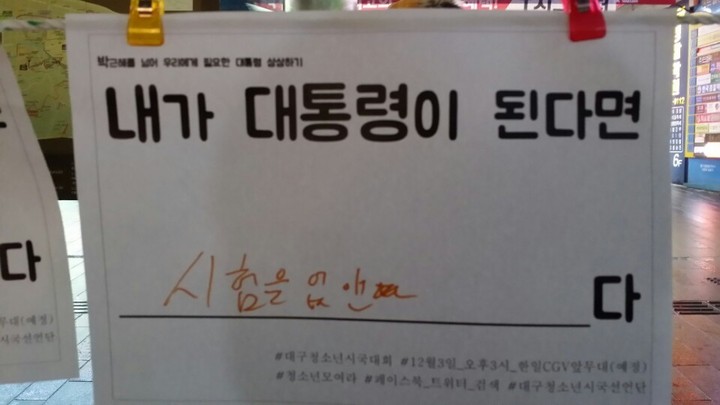 박근혜를 넘어 우리에게 필요한 대통령 상상하기
내가 대통령이 된다면
시험을 없앤
다
#대구청소년시국대회 #12월3일_오후3시_한일CGV앞무대(예정)
#청소년모여라 #페이스북_트위터_검색 #대구청소년시국선언단
다
무대(예정)
시국선언단
6F